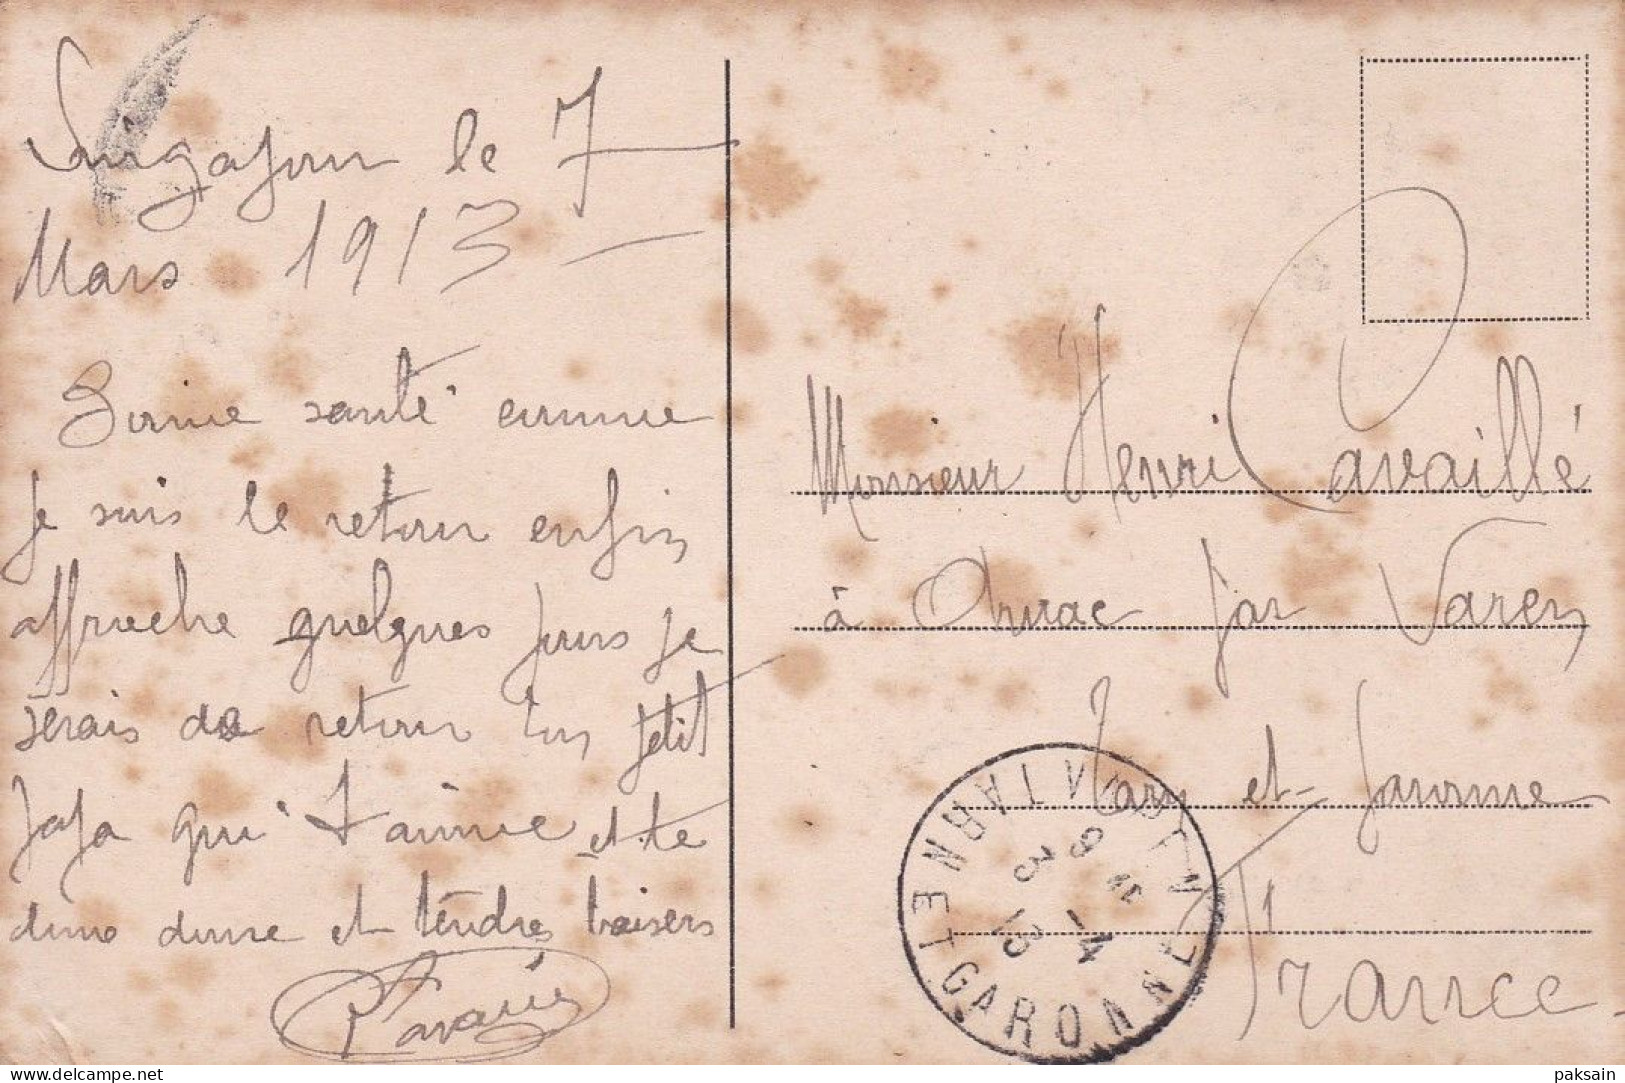 Singapour le 7
Mars 1913
Bonne santé comme
je suis le retour enfin
approche quelques jours je
serais de retour ton petit
Jaja qui t'aime et te
donne et tendres baisers
Monsieur Henri Cavaillé
à Arnac par Varen
Tarn et Garonne
France
TARN ET GARONNE
9 4
-4
3 13
paksain delcampe.net